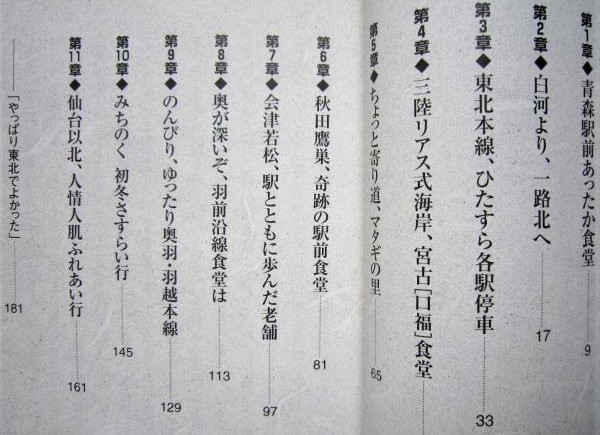 第1章◆青森駅前あったか食堂 9
第2章◆白河より、一路北へ 17
第3章◆東北本線、ひたすら各駅停車 33
第4章◆三陸リアス式海岸、宮古［口福］食堂
第5章◆ちょっと寄り道、マタギの里 65
第6章◆秋田鷹巣、奇跡の駅前食堂 81
第7章◆会津若松、駅とともに歩んだ老舗 97
第8章◆奥が深いぞ、羽前沿線食堂は 113
第9章◆のんびり、ゆったり奥羽・羽越本線 129
第10章◆みちのく 初冬さすらい行 145
第11章◆仙台以北、人情人肌ふれあい行 161
「やっぱり東北でよかった」 181